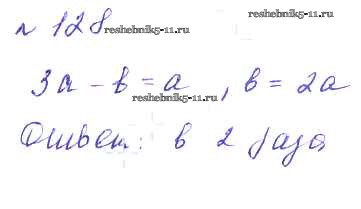 № 128 reshebnik5-11.ru
reshebnik5-11.ru
3а – в = а , в = 2а
reshebnik5-11.ru
Ответ: в 2 раза